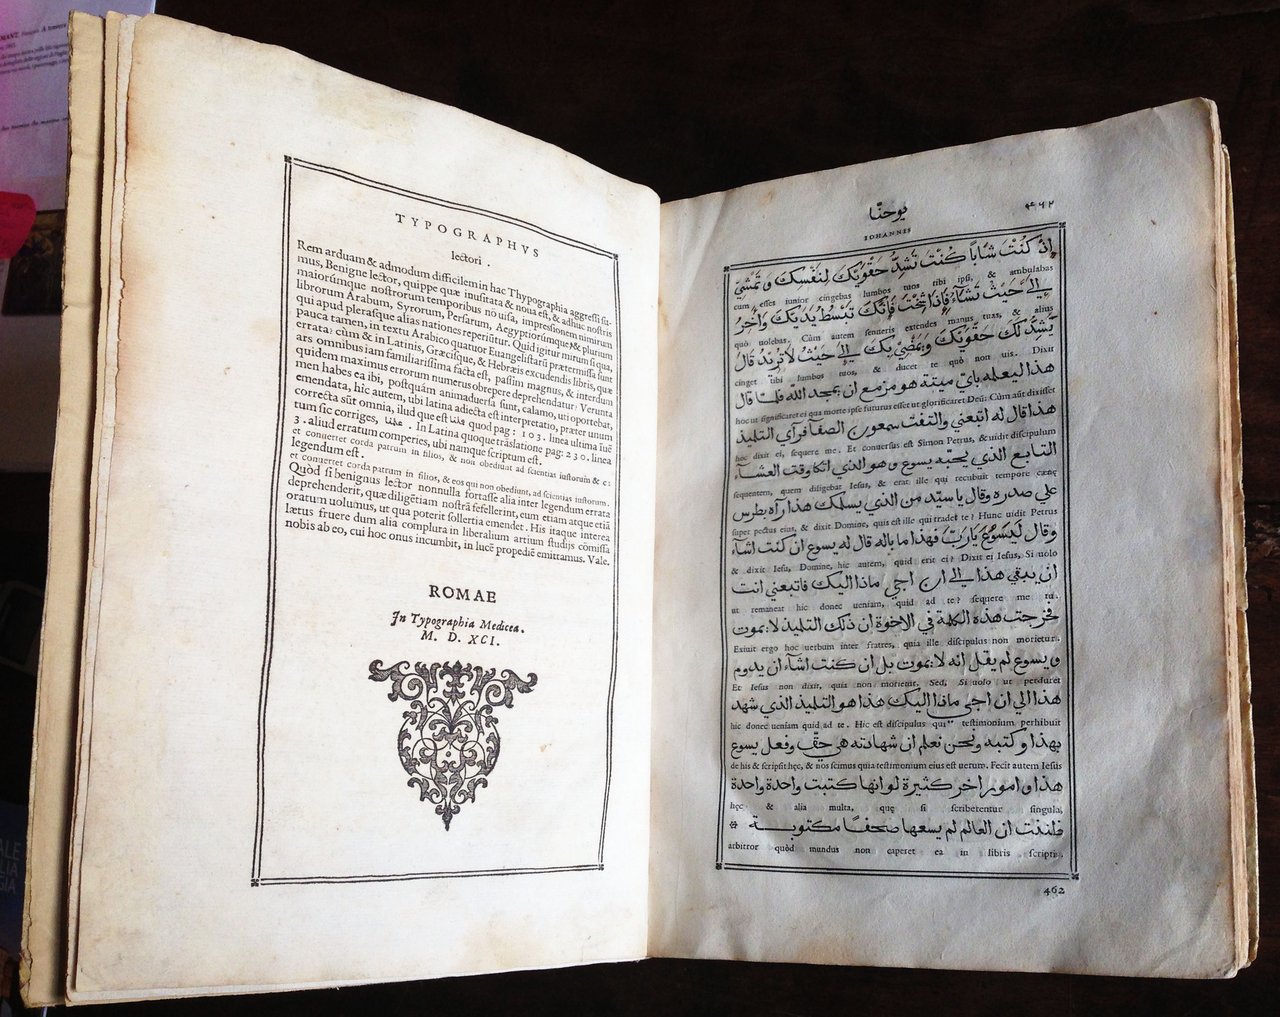 TYPOGRAPHVS
lectori .
Rem arduam & admodum difficilem in hac Thypographia aggressi su-
mus, Benigne lector, quippe quæ inusitata & noua est, & adhuc nostris
maiorúmque nostrorum temporibus nõ uisa, impressionem nimirum
librorum Arabum, Syrorum, Persarum, Aegyptiorúmque, & plurium
qui apud plerasque alias nationes reperiũtur. Quid igitur mirum si qua,
pauca tamen, in textu Arabico quatuor Euangelistarũ prætermissa sunt
errata: cùm & in Latinis, Græcisque, & Hebræis excudendis libris, quæ
ars omnibus iam familiarissima facta est, passim magnus, & interdum
quidem maximus errorum numerus obrepere deprehendatur? Verunta
men habes ea ibi, postquàm animaduersa sunt, calamo, uti oportebat,
emendata, hic autem, ubi latina adiecta est interpretatio, præter unum
correcta sũt omnia, illud que est quod pag: 103. linea ultima ĩuẽ
tum sic corriges, . In Latina quoque trãslatione pag: 230. linea
3. aliud erratum comperies, ubi namque scriptum est.
et conuertet corda patrum in filios, & non obediunt ad scientias iustorum & c:
legendum est .
et conuertet corda patrum in filios, & eos qui non obediunt, ad scientias iustorum.
Quòd si benignus lector nonnulla fortasse alia inter legendum errata
deprehenderit, quæ diligẽtiam nostrã fefellerint, eum etiam atque etiã
oratum uolumus, ut qua poterit sollertia emendet. His itaque interea
lætus fruere dum alia complura in liberalium artium studijs cõmissa
nobis ab eo, cui hoc onus incumbit, in lucẽ propediẽ emittamus. Vale.
ROMAE
In Typographia Medicea.
M. D. XCI.
يوحنّا ۴۶۲
IOHANNIS
اذ كُنْتَ شَابًّا كُنْتَ تَشُدُّ حَقْوَيْكَ لِنَفْسِكَ وَتَمْشِي
cum esses iunior cingebas lumbos tuos tibi ipsi, & ambulabas
إلى حَيْثُ تَشَاءُ فَإِذَا شِخْتَ فَإِنَّكَ تَبْسُطُ يَدَيْكَ وَآخَرُ
quò uolebas. Cùm autem senueris extendes manus tuas, & alius
يَشُدُّ لَكَ حَقْوَيْكَ وَيَمْضِي بِكَ إلى حَيْثُ لَا تُرِيدُ قَالَ
cinget tibi lumbos tuos, & ducet te quò non uis. Dixit
هذا ليعلمه باي ميتة هو مزمع ان يمجد الله فلما قال
hoc ut significaret ei qua morte ipse futurus esset ut glorificaret Deũ: Cùm aũt dixisset
هذا قال له اتبعني والتفت سمعون الصفا فرآى التلميذ
hoc dixit ei, sequere me. Et conuersus est Simon Petrus, & uidit discipulum
التابع الذي يحبّه يسوع وهو الذي اتكا وقت العشآء
sequentem, quem diligebat Iesus, & erat ille qui recubuit tempore cœnę
على صدره وقال يا سيّد من الذي يسلمك هذا رآه بطرس
super pectus eius, & dixit Domine, quis est ille qui tradet te? Hunc uidit Petrus
وقال لِيَسُوعَ يَارَبّ فهذا ما باله قال له يسوع ان كنت اشآء
& dixit Iesu, Domine, hic autem, quid erit ei? Dixit ei Iesus, Si uolo
ان يبقى هذا إلى ان اجي ماذا اليك فاتبعني انت
ut remaneat hic donec ueniam, quid ad te? sequere me tu.
فخرجت هذه الكلمة في الاخوة ان ذلك التلميذ لا يموت
Exiuit ergo hoc uerbum inter fratres, quia ille discipulus non morietur.
ويسوع لم يقل انه لا يموت بل ان كنت اشآء ان يدوم
Et Iesus non dixit, quia non morietur. Sed, Si uolo ut perduret
هذا الى ان اجي ماذا اليك هذا هو التلميذ الذي شهد
hic donec ueniam quid ad te. Hic est discipulus qui testimonium perhibuit
بهذا وكتبه ونحن نعلم ان شهادته هي حقّ وفعل يسوع
de his & scripsit hęc, & nos scimus quia testimonium eius est uerum. Fecit autem Iesus
هذا وامور اخر كثيرة لو انها كتبت واحدة واحدة
hęc & alia multa, quę si scriberentur singula,
فلننت ان العالم لم يسعها صحفًا مكتوبة
arbitror quòd mundus non caperet ea in libris scriptis.
462